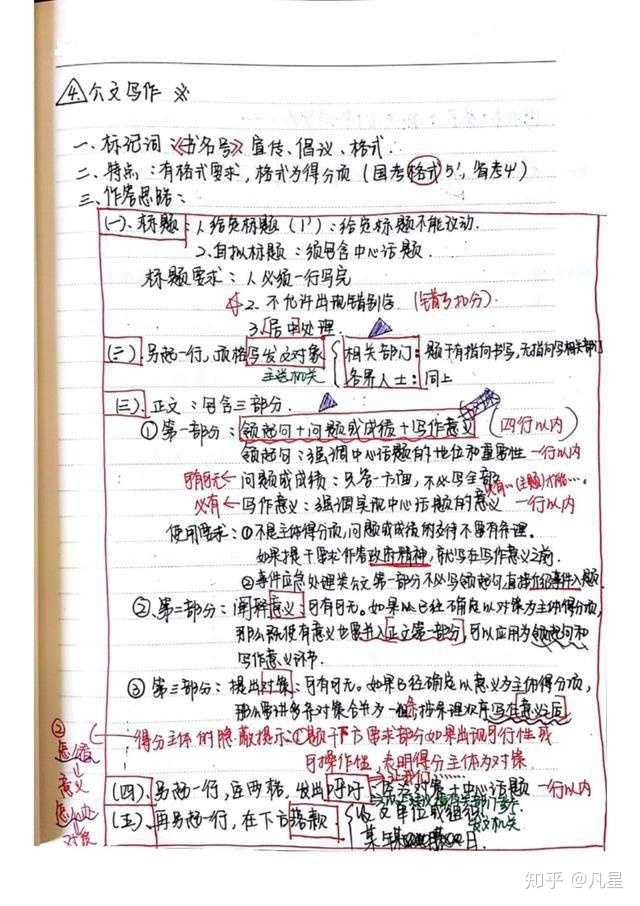 4. 公文写作 ※
一、标记词：《书名号》宣传、倡议、格式.
二、特点：有格式要求，格式为得分项（国考格式5'，省考4'）
三、作答思路：
(一)、标题：1.给定标题（1'）：给定标题不能改动.
2.自拟标题：须包含中心话题.
标题要求：1.必须一行写完
2.不允许出现错别字（错了扣分）.
3.居中处理.
(二)、另起一行，顶格写发文对象
主送机关
相关部门：题干有指向书写，无指向写相关部门
各界人士：同上
(三)、正文：包含三部分.
①第一部分：领起句+问题或成绩+写作意义（四行以内）
领起句：强调中心话题的地位和重要性 一行以内
可有可无← 问题或成绩：只写一方面，不必写全部
只有…（主题）才能…
必有← 写作意义：强调实现中心话题的意义 一行以内
使用要求：①不是主体得分项，问题或成绩的支持不要有条理.
如果提干要求作答政府精神，就写在写作意义之前.
②事件应急处理类公文第一部分不必写领起句，直接介绍事件入题.
②、第二部分：阐释意义：可有可无。如果已经确定以对策为主体得分项，
那么既使有意义也要并入正文第一部分，可以应用为领起句和
写作意义环节.
③第三部分：提出对策：可有可无。如果已经确定以意义为主体得分项，
那么要讲多条对策合并为一组，按条理次序写在意义后
得分主体的隐蔽提示：①题干下方要求部分如果出现可行性或
可操作性，表明得分主体为对策.
②
怎么看
↓
意义
怎么处
↓
对策
(四)、另起一行，空两格，发出呼吁：
让我们
对策+中心话题 一行以内
(五)、再另起一行，在下方落款
发文单位或组织
发文机关
某年某月某日.
知乎 @凡星